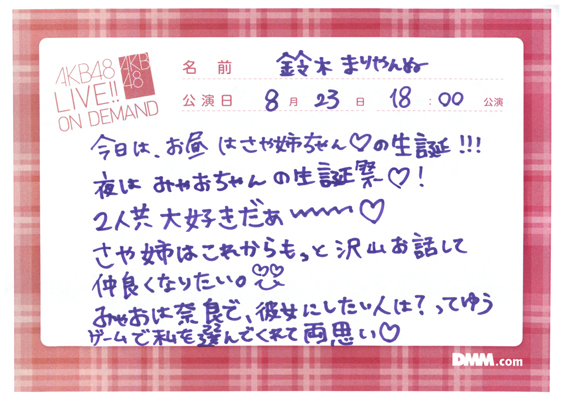 AKB48
LIVE!!
ON DEMAND
AKB
48
名前 鈴木まりやんぬ
公演日 8月23日 18:00公演
今日は、お昼はさや姉ちゃん♡の生誕!!!
夜はみゃおちゃんの生誕祭♡!
2人共大好きだぁ〜〜〜♡
さや姉はこれからもっと沢山お話して
仲良くなりたい。
みゃおは奈良で、彼女にしたい人は?ってゆう
ゲームで私を選んでくれて両思い♡
DMM.com